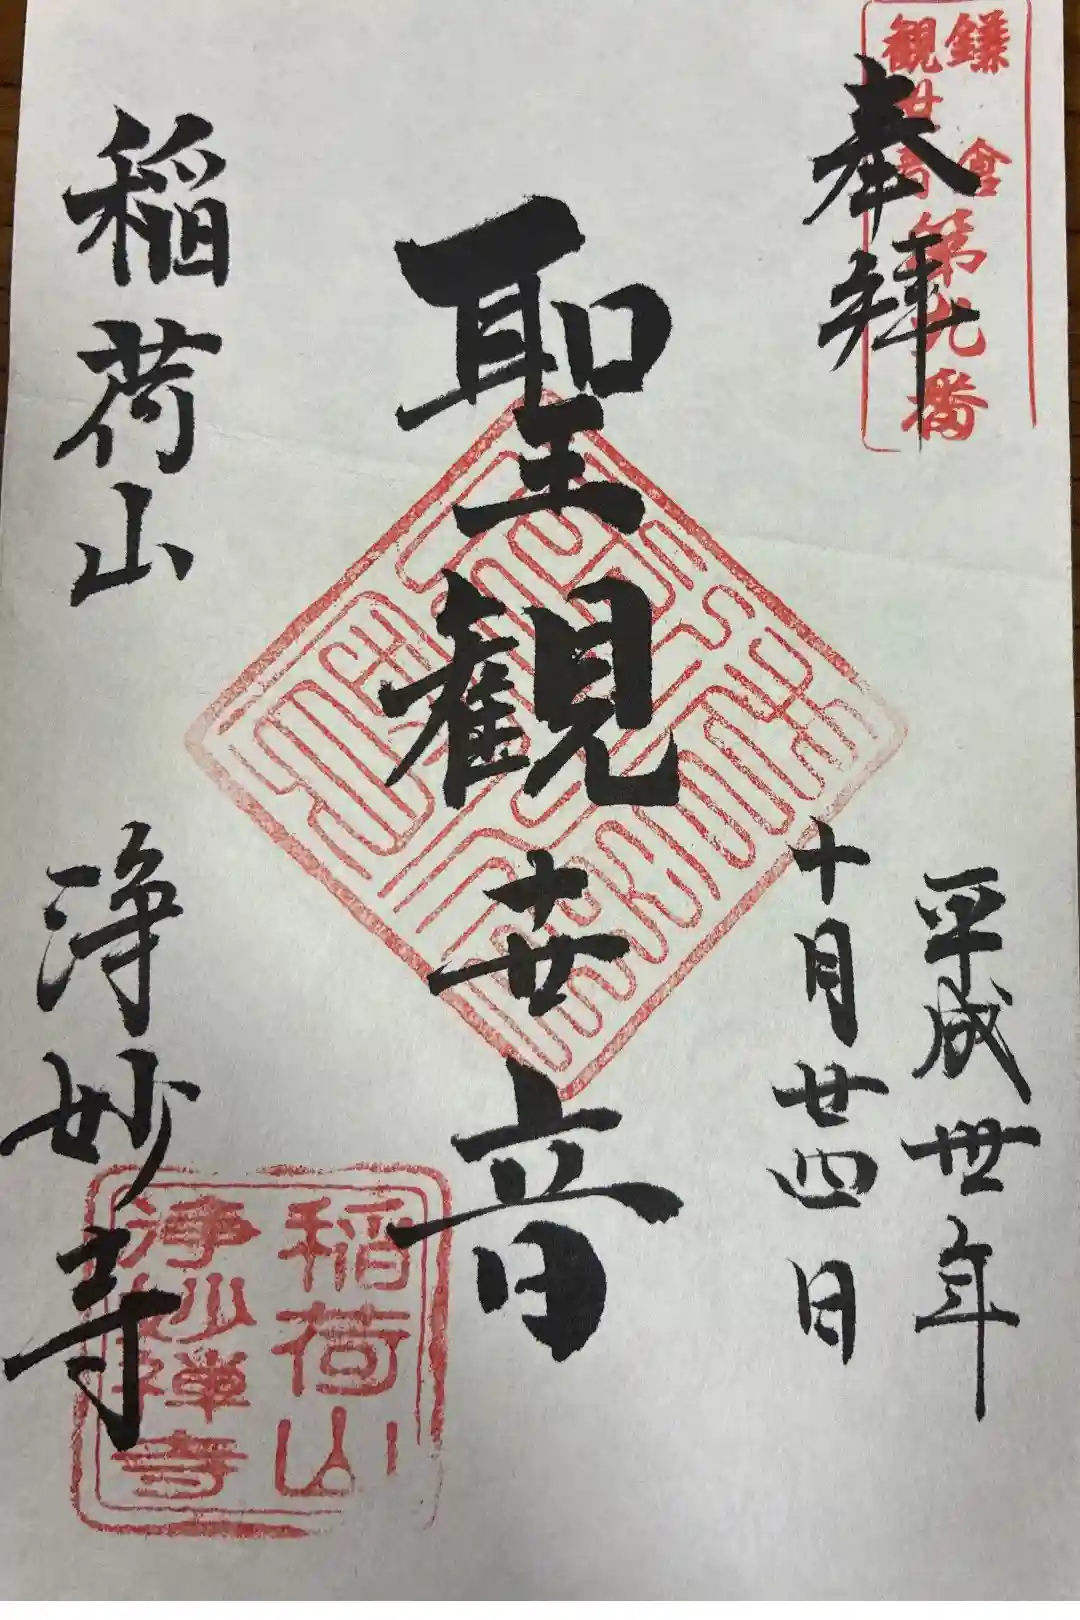 鎌倉
観世音
第九番
奉拝
平成丗年
十月廿四日
聖観世音
稲荷山
浄妙寺
稲荷山
浄妙禅寺